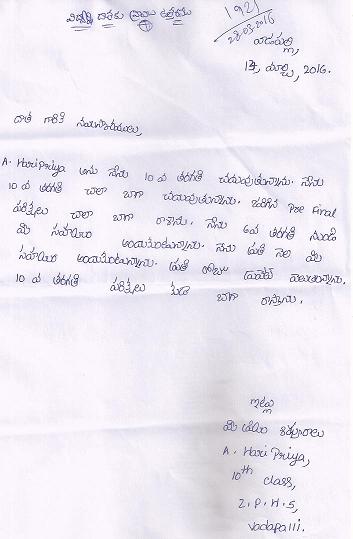 విద్యార్థి దాతకు వ్రాయు ఉత్తరము
1921
28-03-2016
వాడపల్లి,
17, మార్చి, 2016.
దాత గారికి నమస్కారములు,
A. Haripriya అను నేను 10 వ తరగతి చదువుతున్నాను. నేను
10 వ తరగతి చాలా బాగా చదువుతున్నాను. జరిగిన Pre Final
పరీక్షలు చాలా బాగా రాశాను. నేను 6వ తరగతి నుండి
మీ సహాయం అందుకుంటున్నాను. నేను ప్రతి నెల మీ
సహాయం అందుకుంటున్నాను. ప్రతి రోజు
10 వ తరగతి పరీక్షలు కూడా బాగా రాస్తాను.
ఇట్లు
మీ ప్రియమైన
A. Hari Priya,
10th class,
Z.P.H.S,
Vadapalli.